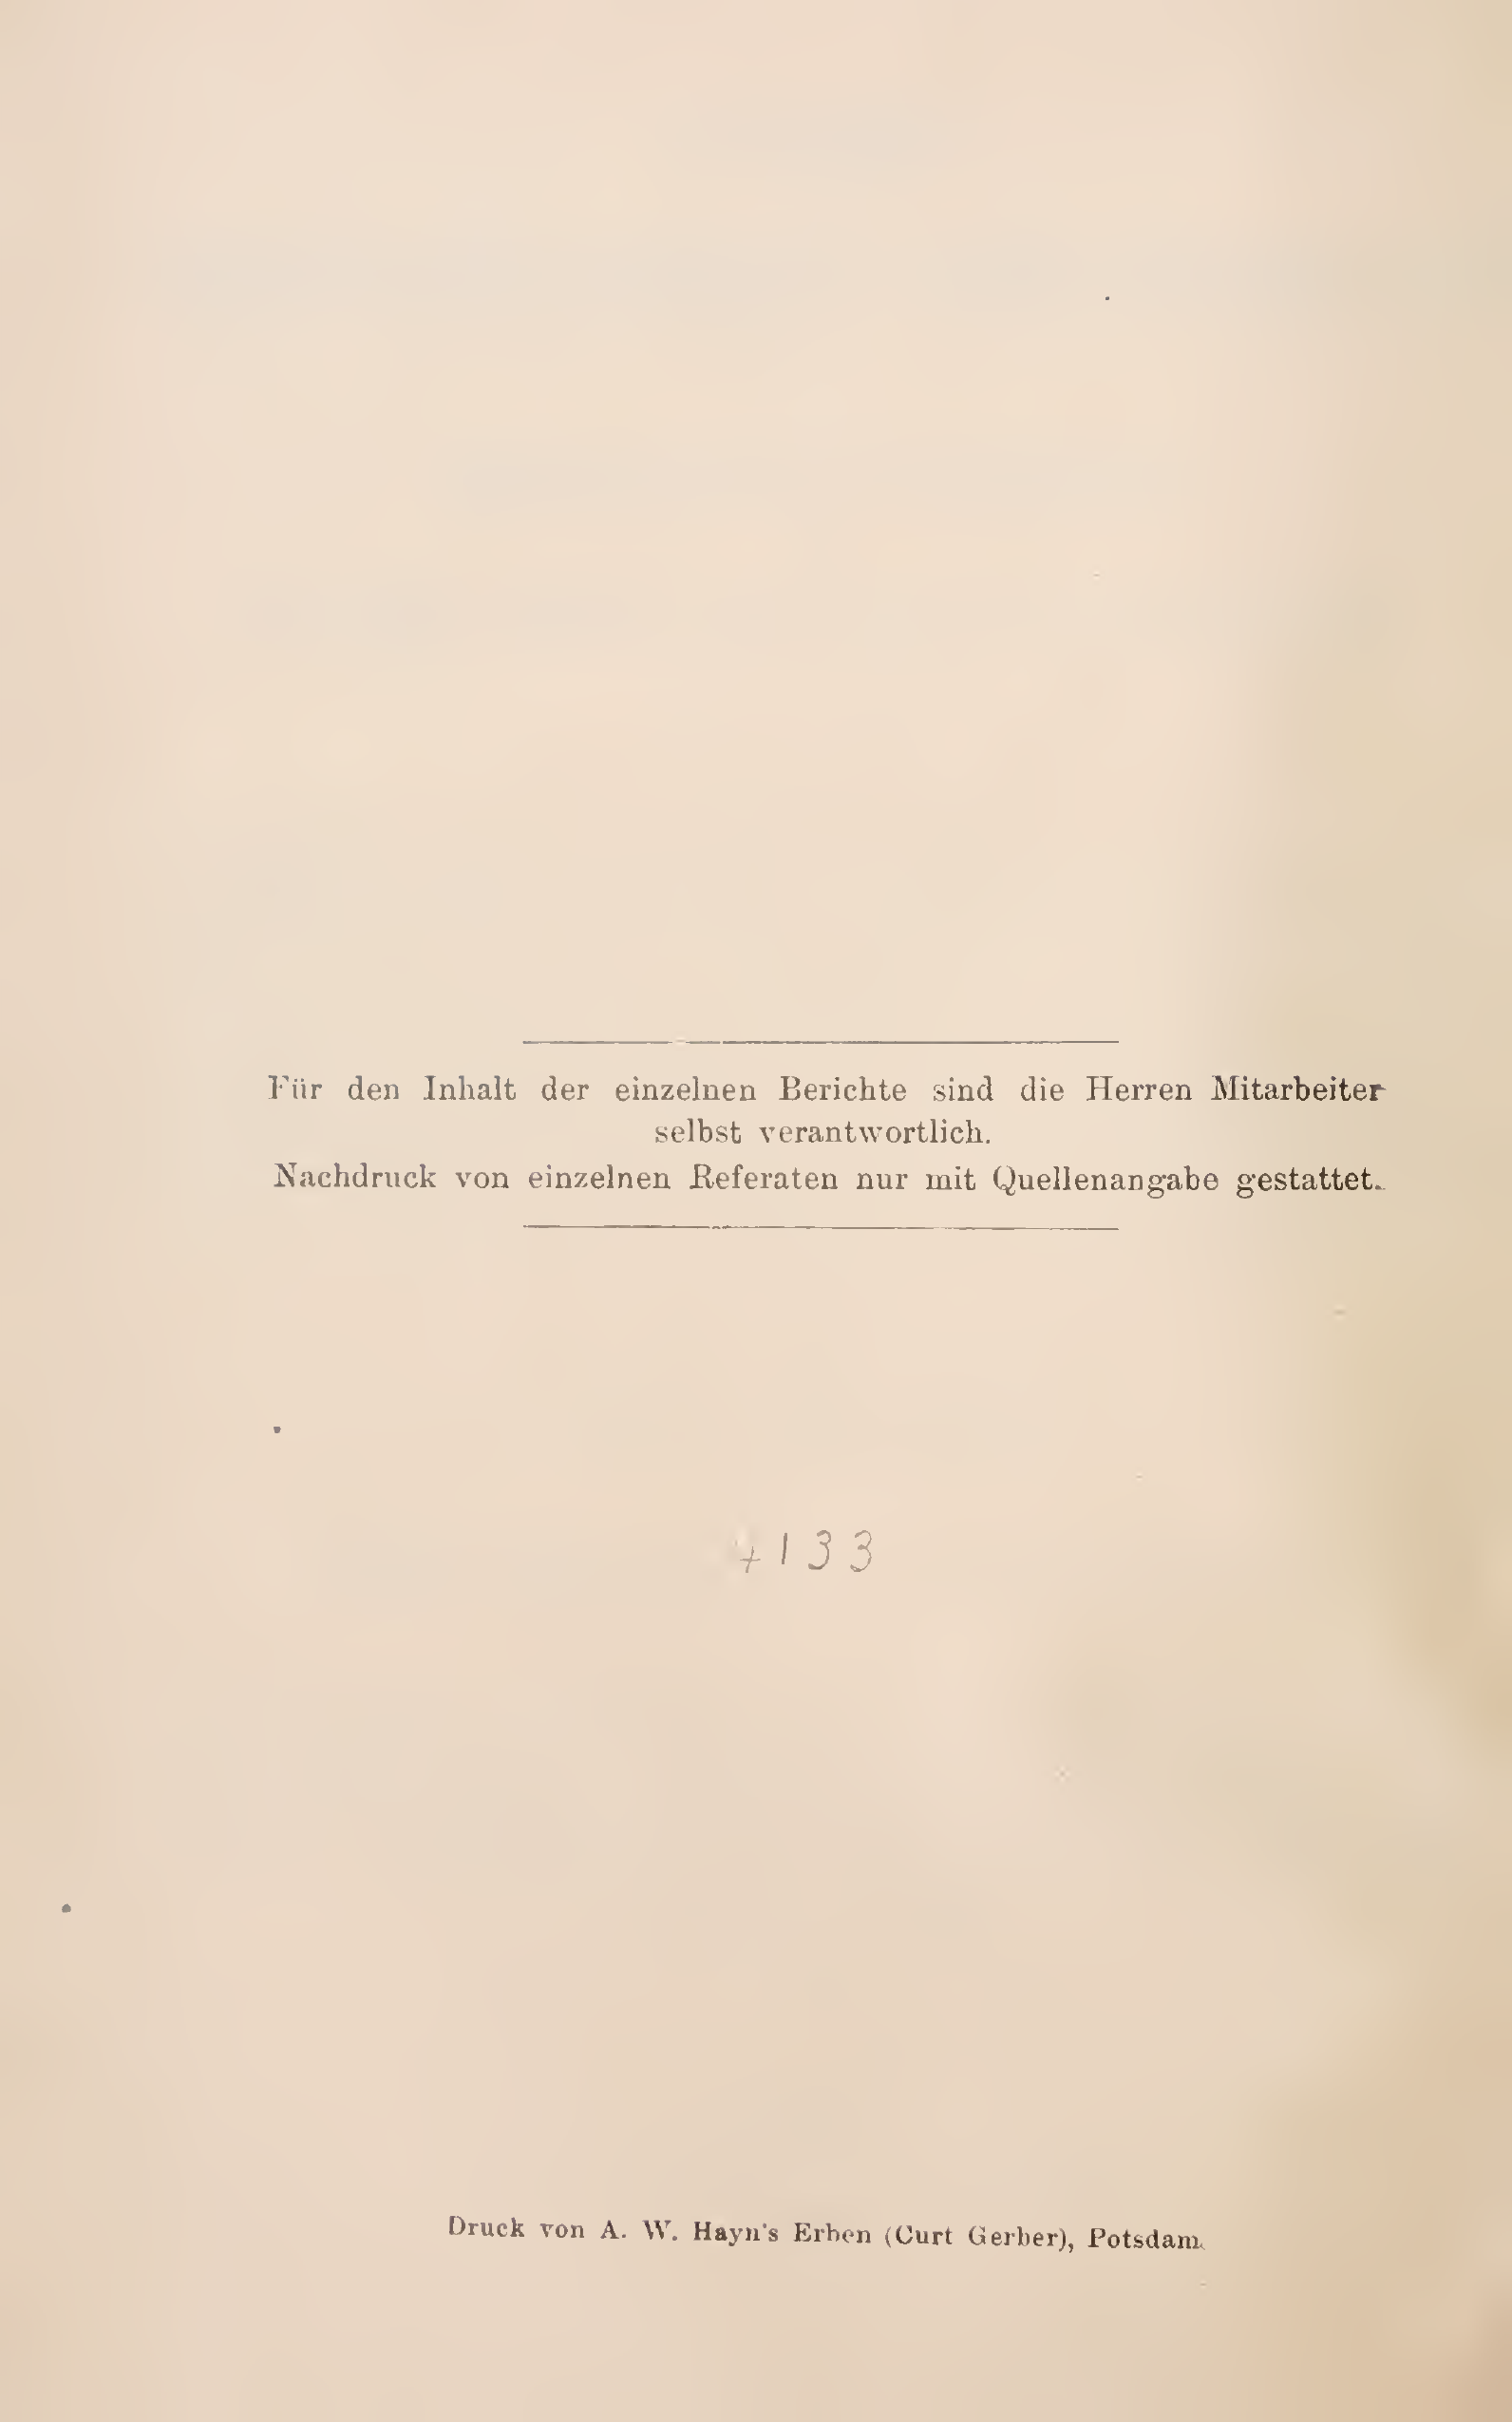 Für den Inhalt der einzelnen Berichte sind die Herren Mitarbeiter
selbst verantwortlich.
Nachdruck von einzelnen Referaten nur mit Quellenangabe gestattet.
4133
Druck von A. W. Hayn's Erben (Curt Gerber), Potsdam.